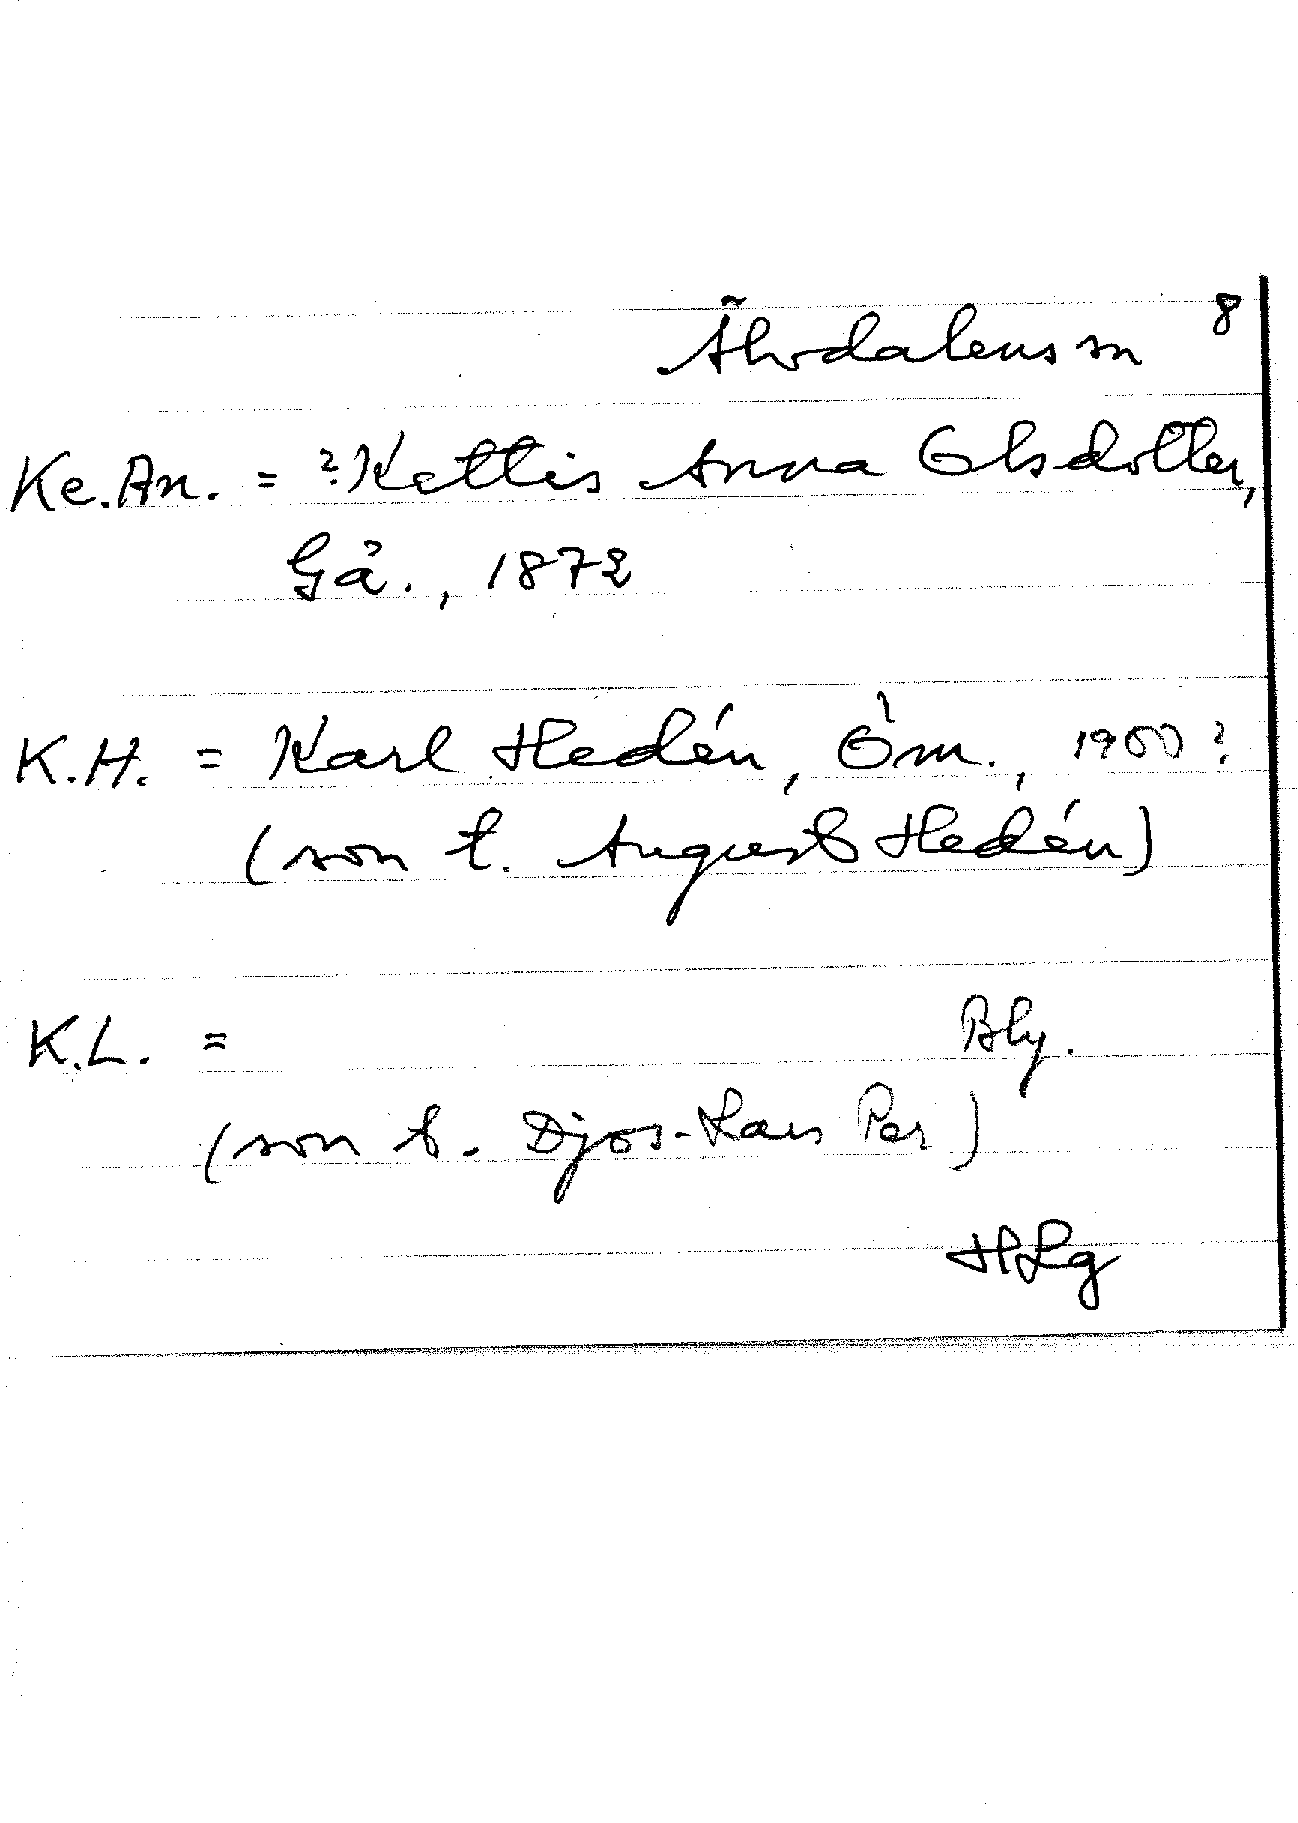 Älvdalens sn 8
Ke.An. = ? Kettis Anna Olsdotter,
Gå., 1872
K.H. = Karl Hedén, Öm., 1900?
(son t. August Hedén)
K.L. = Bly.
(son t. Djos-Lars Per)
HLg